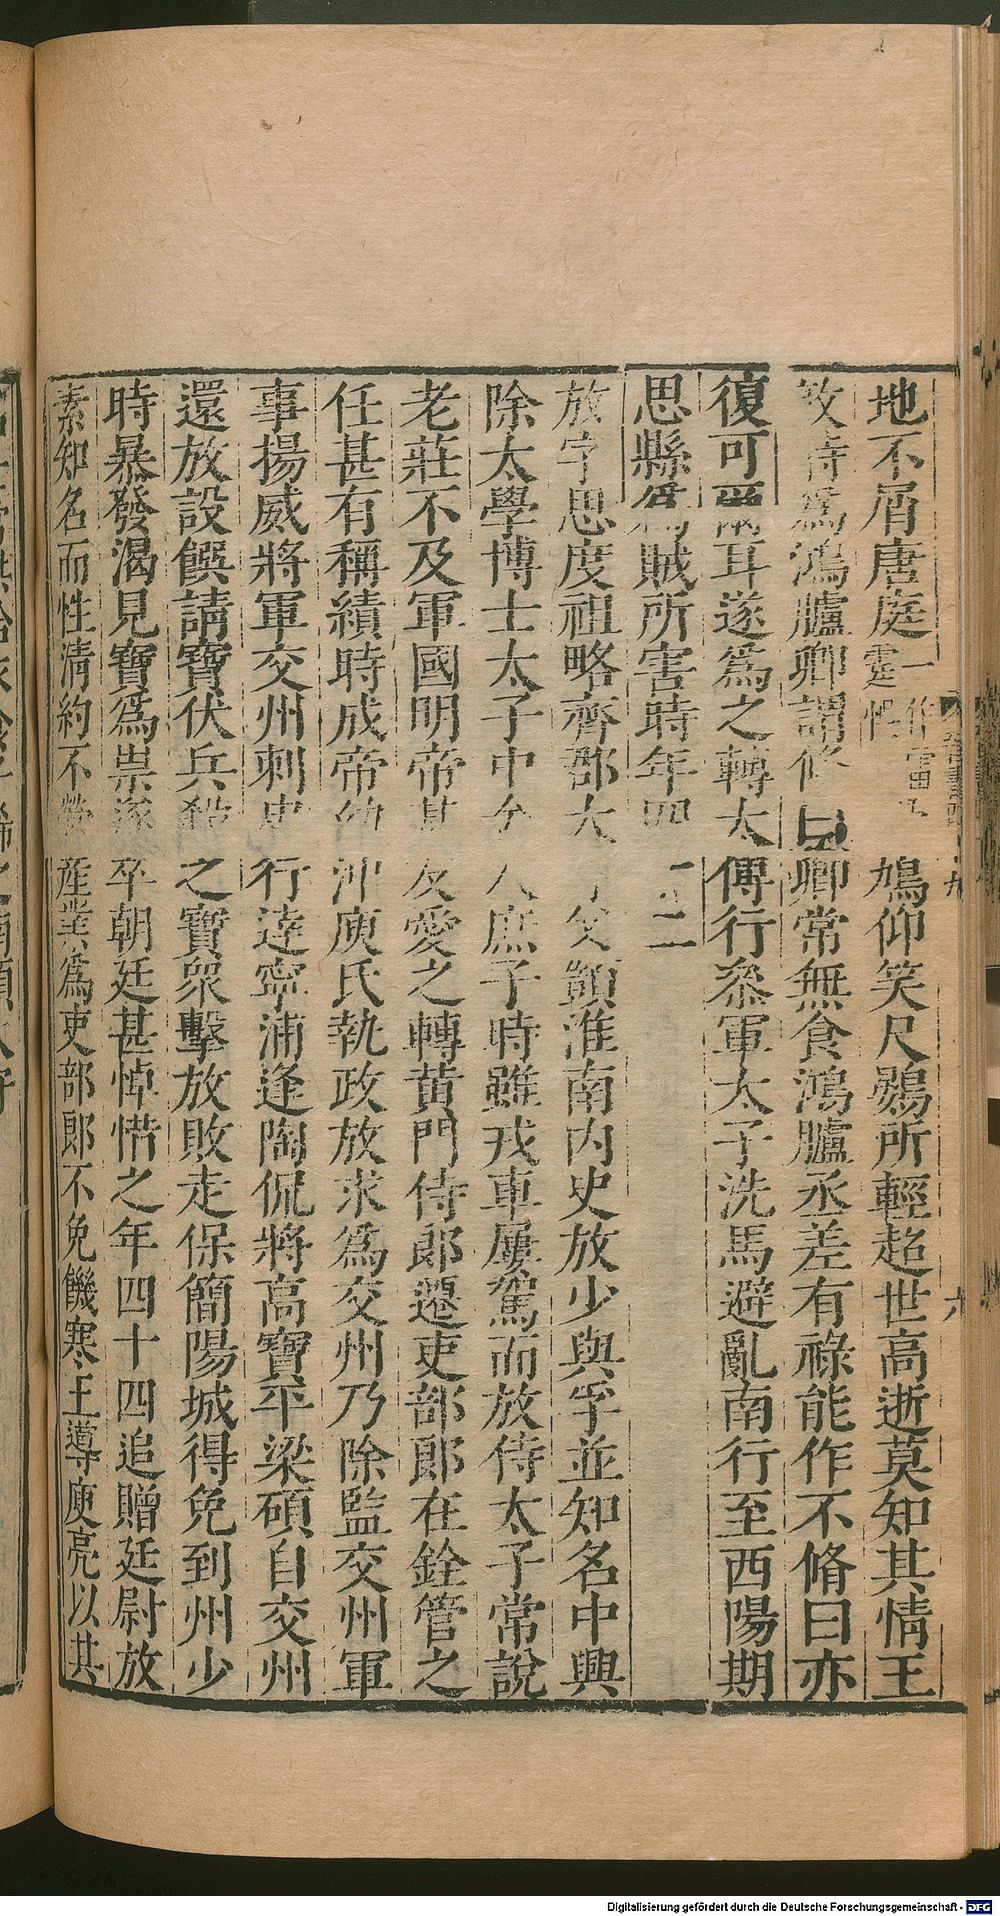 地不屑唐庭鳩仰笑尺鷃所輕超世高逝莫知其情王
敦時爲鴻臚卿謂脩曰卿常無食鴻臚丞差有祿能作不脩曰亦
復可爾耳遂爲之轉太傅行叅軍太子洗馬避亂南行至西陽期
思縣爲賊所害時年四十二
放字思度祖略齊郡太守父顗淮南内史放少與孚並知名中興
除太學博士太子中舍人庶子時雖戎車屢駕而放侍太子常說
老莊不及軍國明帝甚友愛之轉黄門侍郎遷吏部郎在銓管之
任甚有稱績時成帝幼冲庾氏執政放求爲交州乃除監交州軍
事揚威將軍交州刺史行達寧浦逢陶侃將高寶平梁碩自交州
還放設饌請寶伏兵殺之寶衆擊放敗走保簡陽城得免到州少
時暴發渴見寶爲祟遂卒朝廷甚悼惜之年四十四追贈廷尉放
素知名而性清約不營産業爲吏部郎不免饑寒王導庾亮以其
六
Digitalisierung gefördert durch die Deutsche Forschungsgemeinschaft - DFG